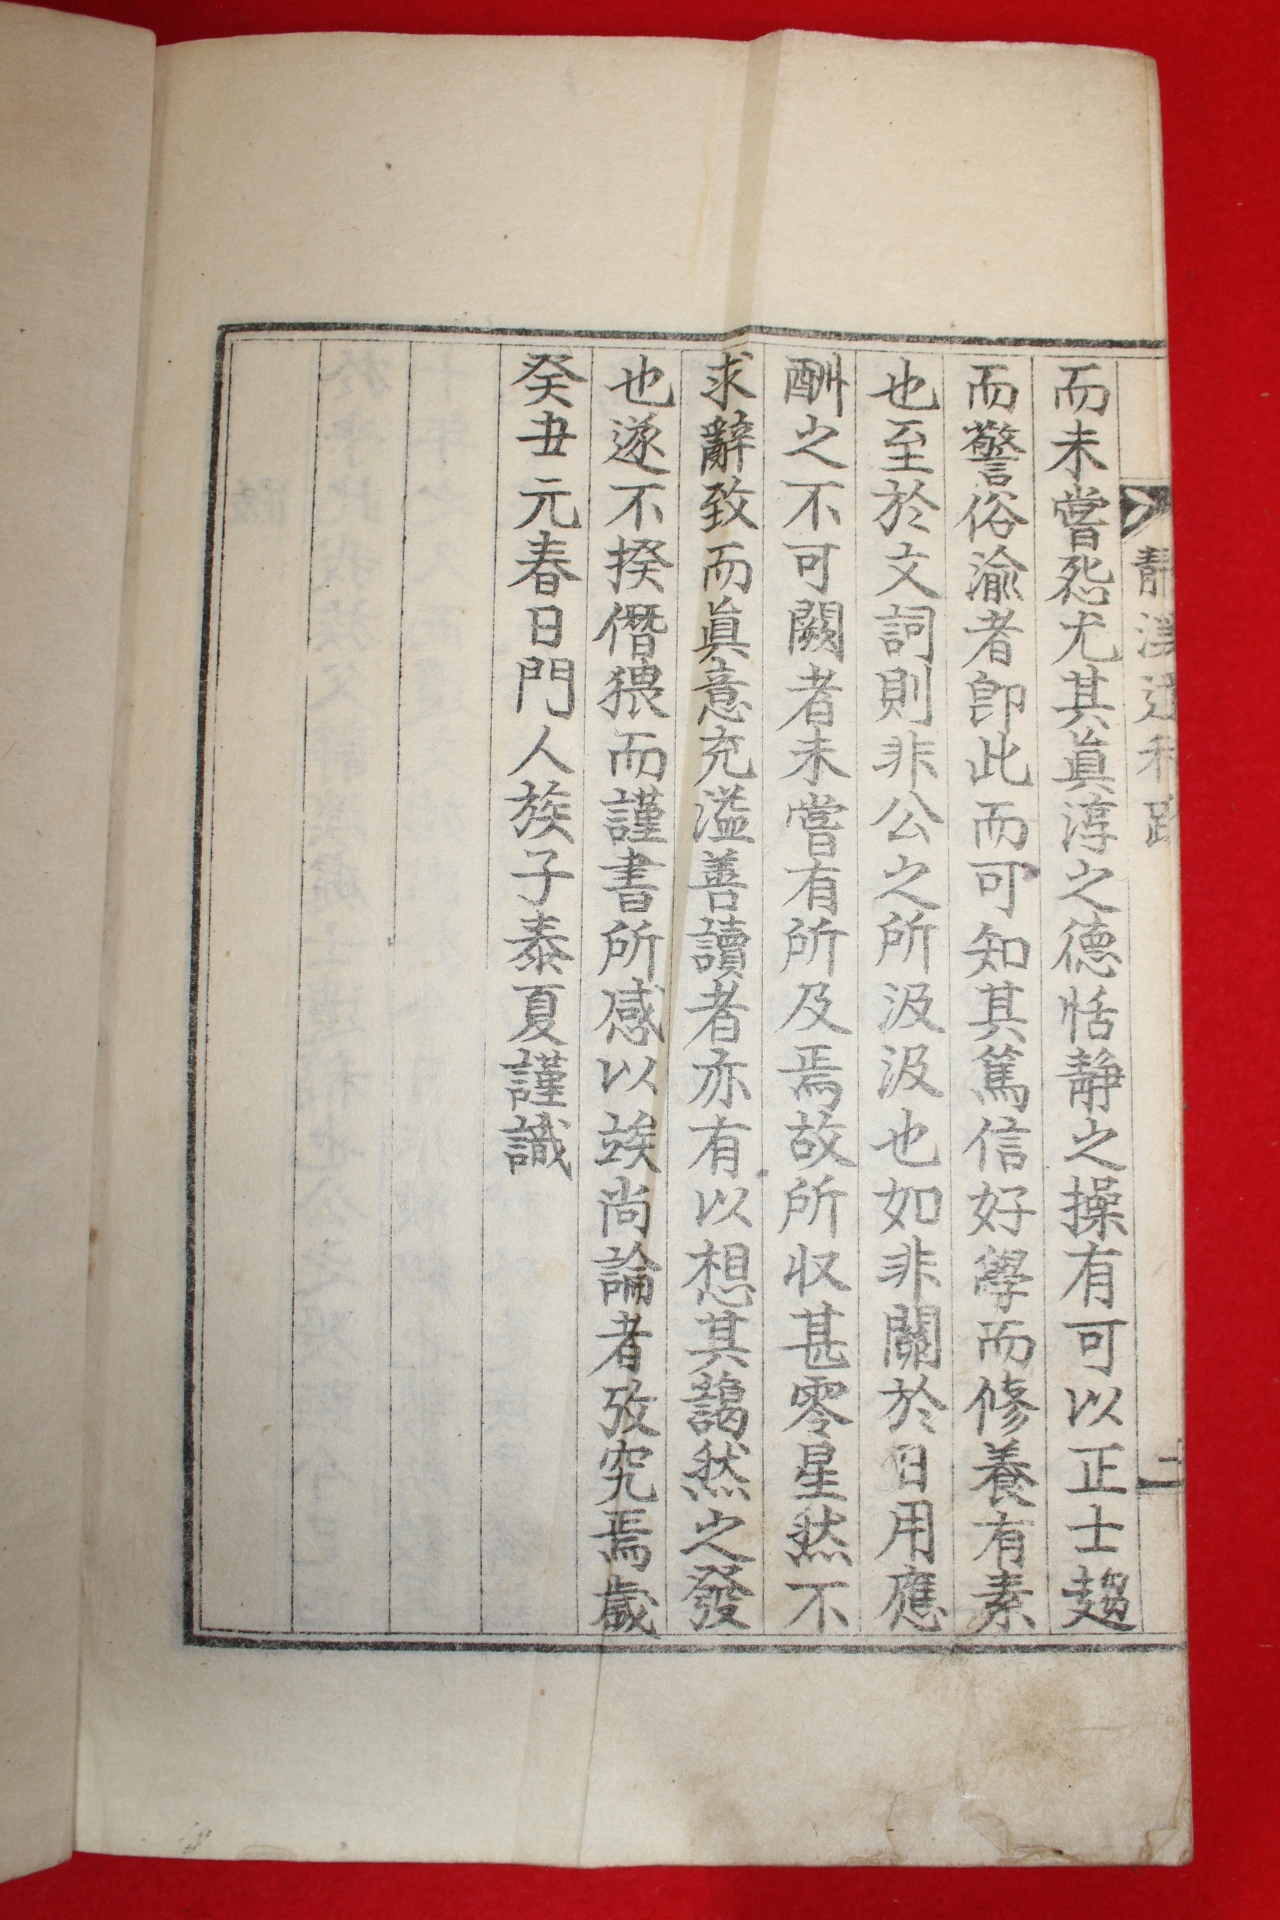 靜溪逸稿跋
二
而未嘗怨尤其眞淳之德恬靜之操有可以正士趨
而警俗渝者卽此而可知其篤信好學而修養有素
也至於文詞則非公之所汲汲也如非關於日用應
酬之不可闕者未嘗有所及焉故所収甚零星然不
求辭致而眞意充溢善讀者亦有以想其藹然之發
也遂不揆僭猥而謹書所感以竢尚論者攷究焉歲
癸丑元春日門人族子泰夏謹識